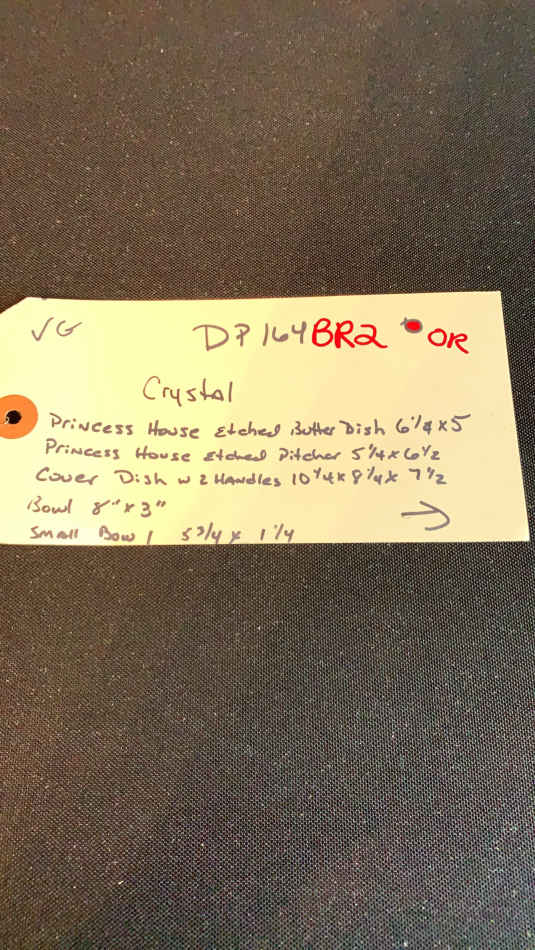 VG DP164 BR2 OR
Crystal
Princess House Etched Butter Dish 6 1/4 x 5
Princess House Etched Pitcher 5 1/4 x 6 1/2
Cover Dish w 2 Handles 10 1/4 x 8 1/4 x 7 1/2
Bowl 8" x 3"
Small Bowl 5 3/4 x 1 1/4